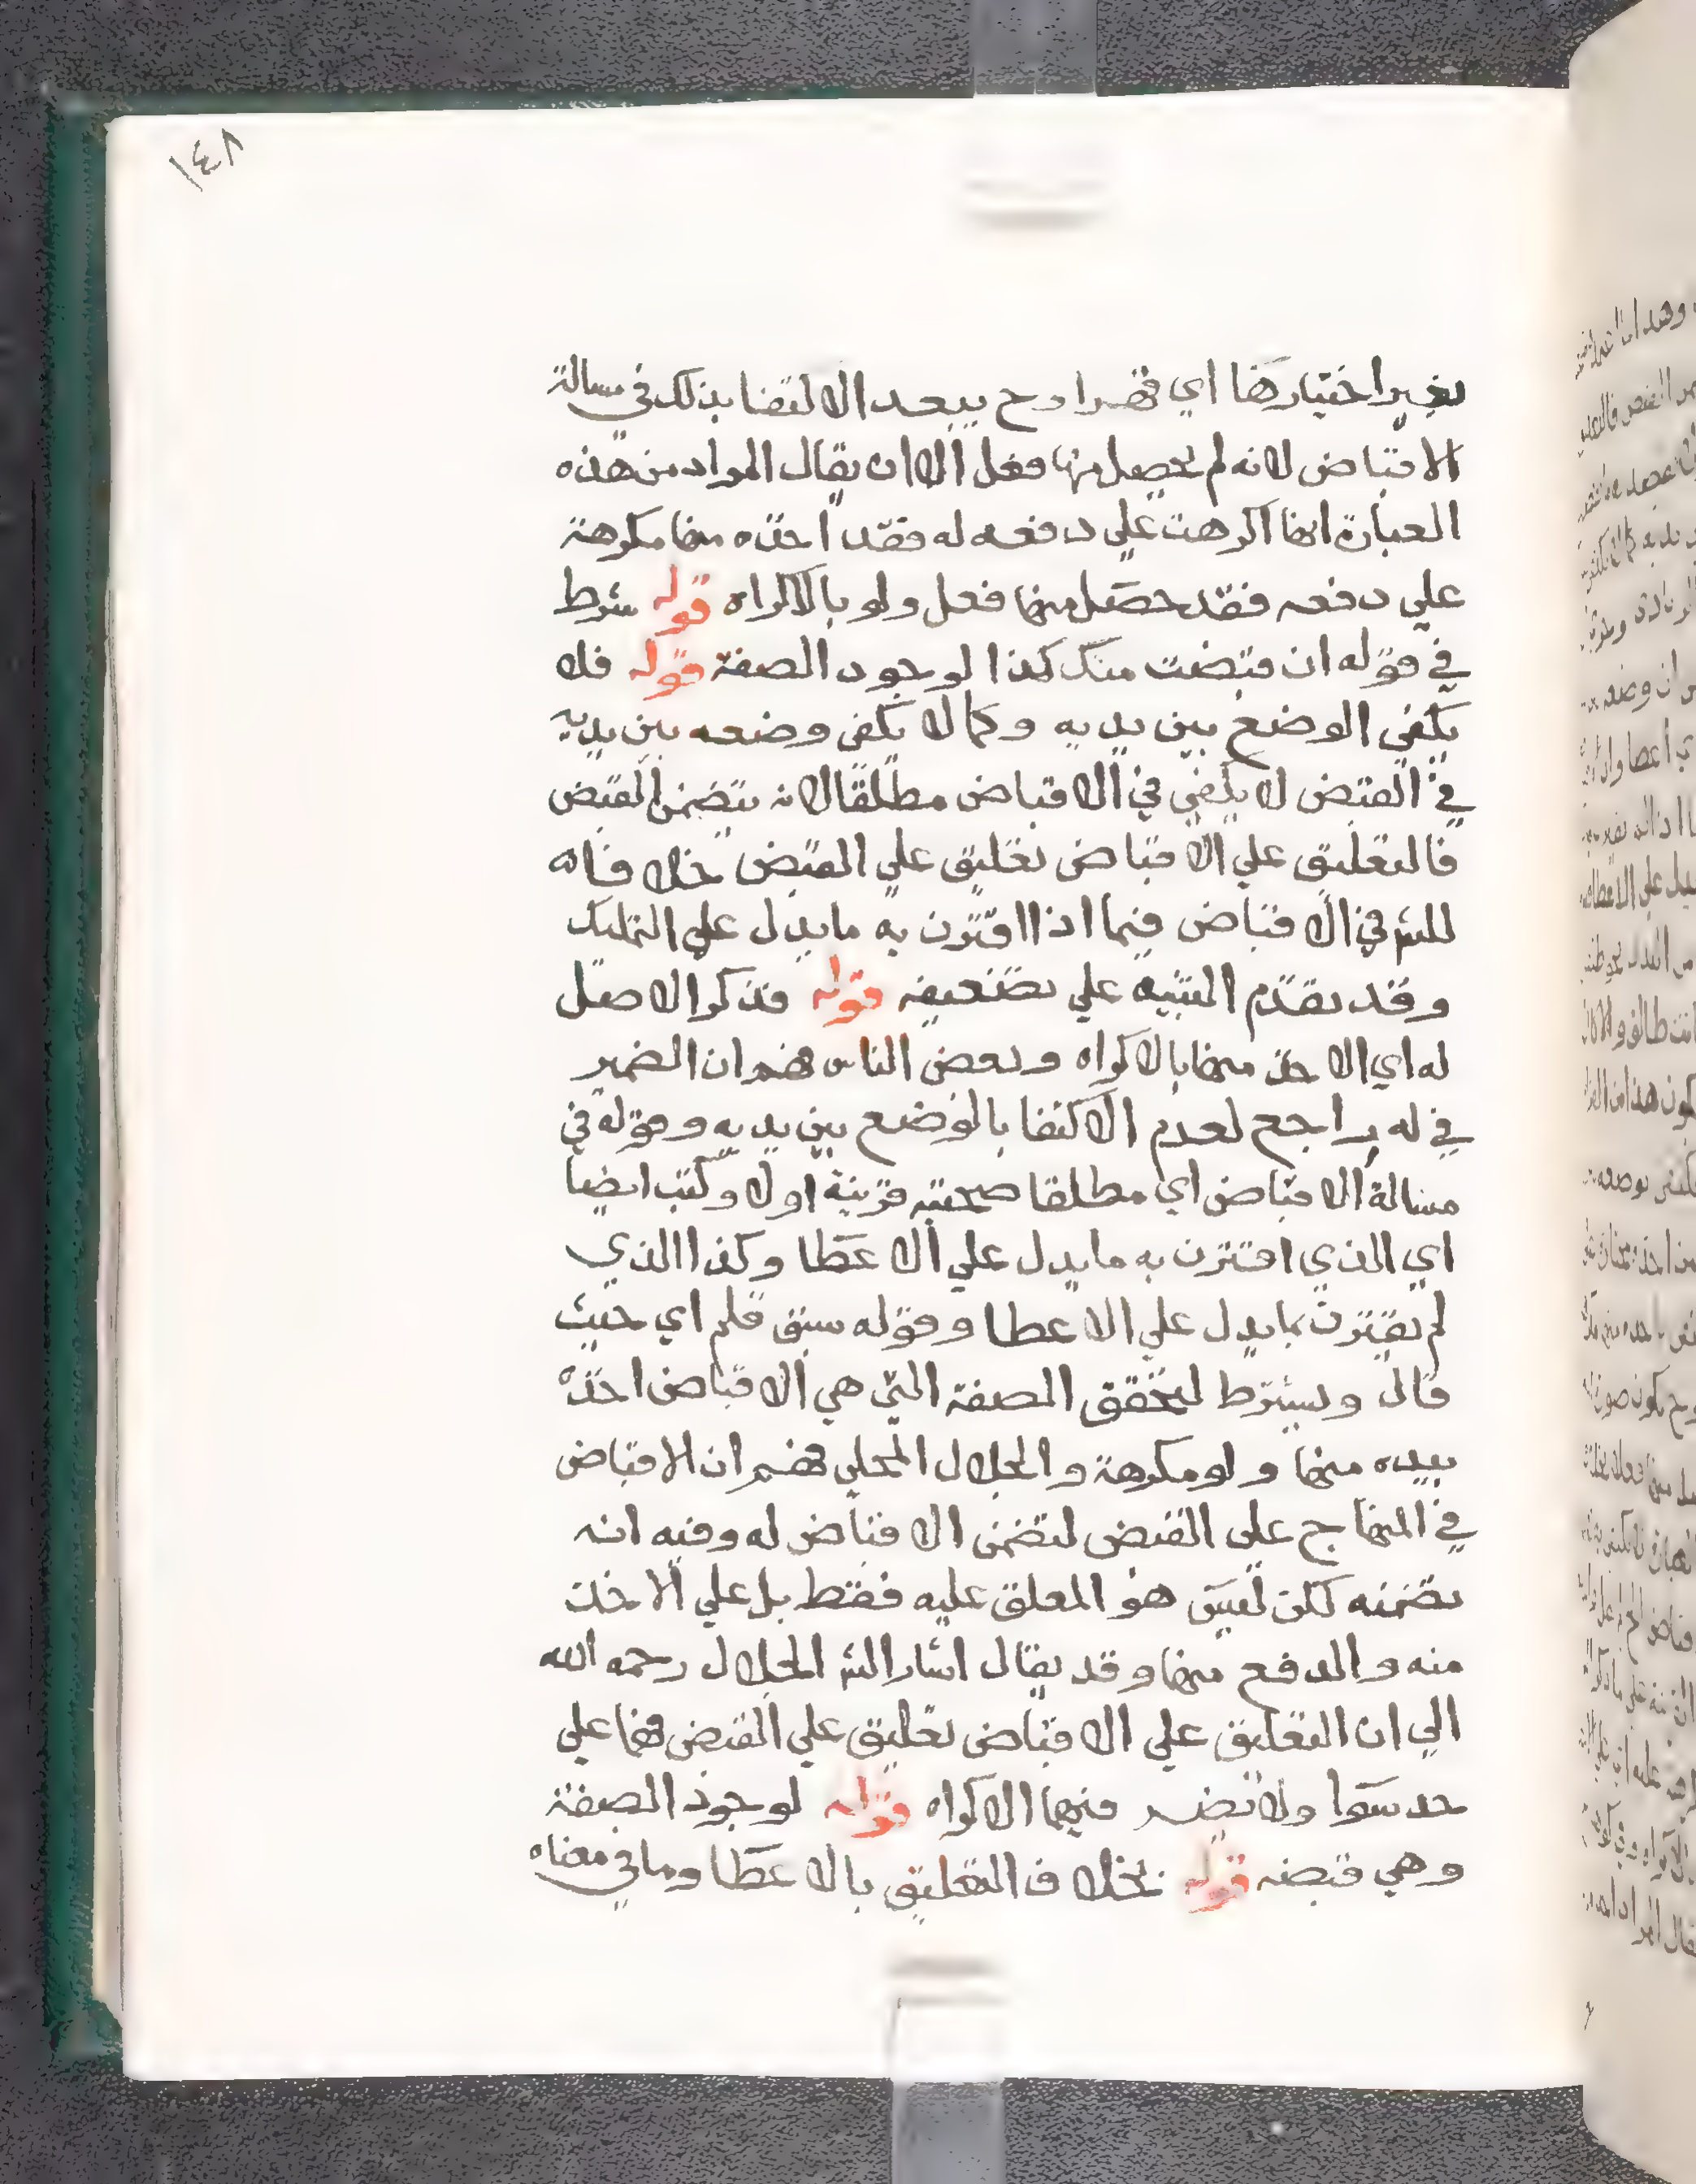 ١٤٨
بغير اختيارها اي قهرا وح يبعد الاكتفا بذلك في مسالة
الاقباض لانه لم يحصل منها فعل الا ان يقال المراد من هذه
العبارة انها اكرهت علي دفعه له فقد اخذه منها مكرهة
علي دفعه فقد حصل منها فعل ولو بالاكراه قوله شرط
في قوله ان قبضت منك كذا لوجود الصفة قوله فلا
يكفي الوضع بين يديه وكما لا يكفي وضعه بين يديه
في القبض لا يكفي في الاقباض مطلقا لانه يتضمن القبض
فالتعليق علي الاقباض تعليق علي القبض خلافا
للش في الاقباض فيما اذا اقترن به ما يدل علي التمليك
وقد تقدم التنبيه علي تضعيفه قوله فذكر الاصل
له اي الاخذ منها بالاكراه وبعض الناس فهم ان الضمير
في له راجع لعدم الاكتفا بالوضع بين يديه وقوله في
مسالة الاقباض اي مطلقا صحبته قرينة اولا وكتب ايضا
اي الذي اقترن به ما يدل علي الاعطا وكذا الذي
لم يقترن بما يدل علي الاعطا وقوله سبق قلم اي حيث
قال ويشترط لتحقق الصفة التي هي الاقباض اخذه
بيده منها ولو مكرهة والجلال المحلي فهم ان الاقباض
في المنهاج علي القبض لتضمن الاقباض له وفيه انه
تضمنه لكن ليس هو المعلق عليه فقط بل علي الاخذ
منه والدفع منها وقد يقال اشار الش الجلال رحمه الله
الي ان التعليق علي الاقباض تعليق علي القبض فهما علي
حد سوا ولا يضر فيهما الاكراه قوله لوجود الصفة
وهي قبضه قوله بخلاف التعليق بالاعطا وما في معناه